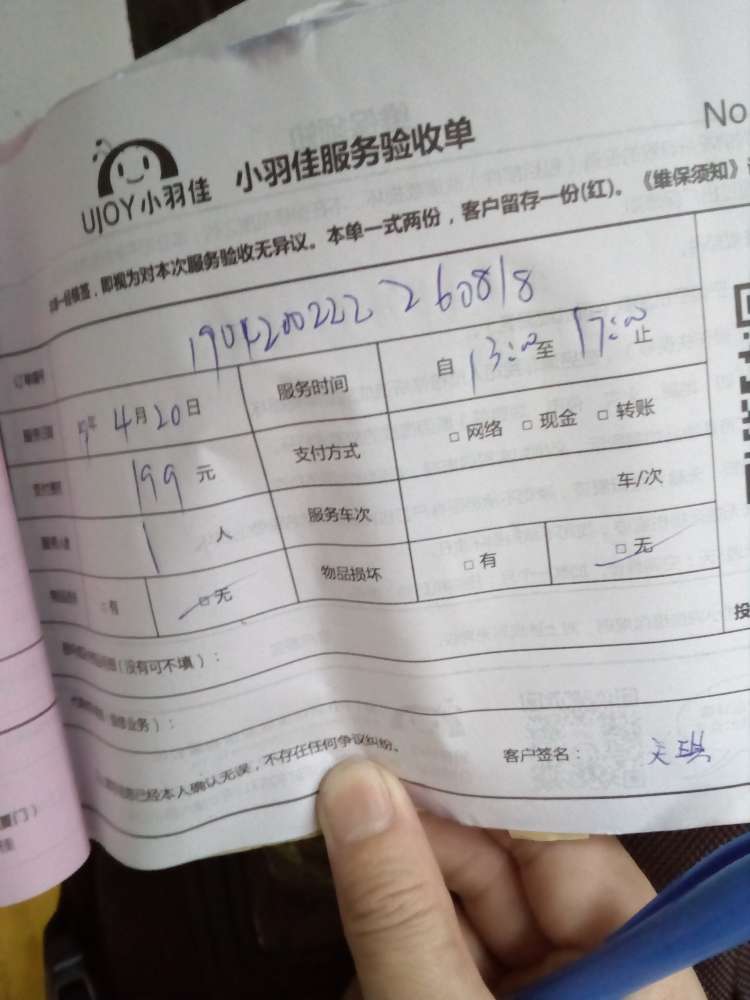 No
UJOY小羽佳 小羽佳服务验收单
即视为对本次服务验收无异议。本单一式两份，客户留存一份(红)。《维保须知》
190420022226081​8
19年4月20日 服务时间 自13:00至17:00止
199元 支付方式 □网络 □现金 □转账
1人 服务车次 车/次
□有 □无 物品损坏 □有 □无
(没有可不填)：
业务)：
已经本人确认无误，不存在任何争议纠纷。 客户签名：